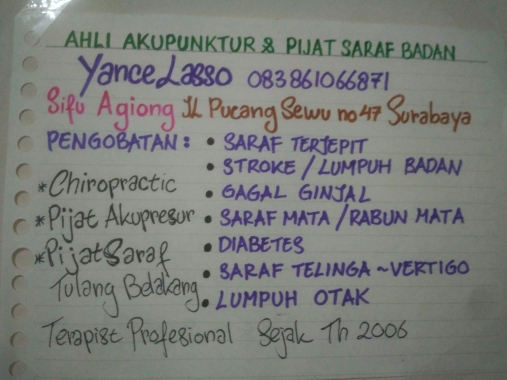 AHLI AKUPUNKTUR & PIJAT SARAF BADAN
Yance Lasso 083861066871
Sifu Agiong JL Pucang Sewu no 47 Surabaya
PENGOBATAN : • SARAF TERJEPIT
• STROKE / LUMPUH BADAN
*Chiropractic • GAGAL GINJAL
*Pijat Akupresur • SARAF MATA / RABUN MATA
*Pijat Saraf • DIABETES
Tulang Belakang • SARAF TELINGA ~ VERTIGO
• LUMPUH OTAK
Terapist Profesional Sejak Th 2006